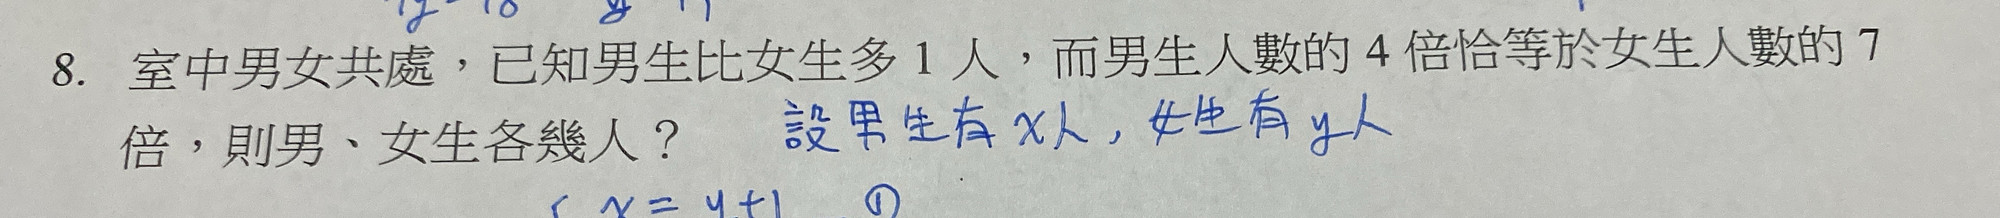 8. 室中男女共處，已知男生比女生多 1 人，而男生人數的 4 倍恰等於女生人數的 7
倍，則男、女生各幾人？ 設男生有x人，女生有y人
x = y+1 ①